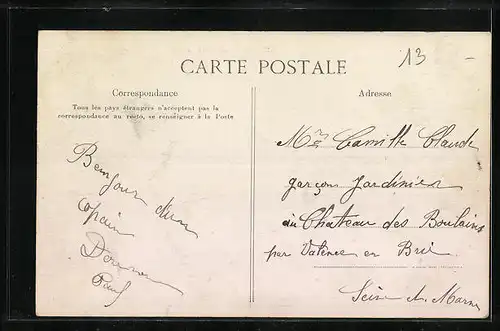 13
CARTE POSTALE
Correspondance
Tous les pays étrangers n'acceptent pas la
correspondance au recto, se renseigner à la Poste
Bonjour d'un
copain
Paul
Adresse
Camille Claude
garçon jardinier
au Chateau des Boulains
par Valence en Brie
Seine et Marne